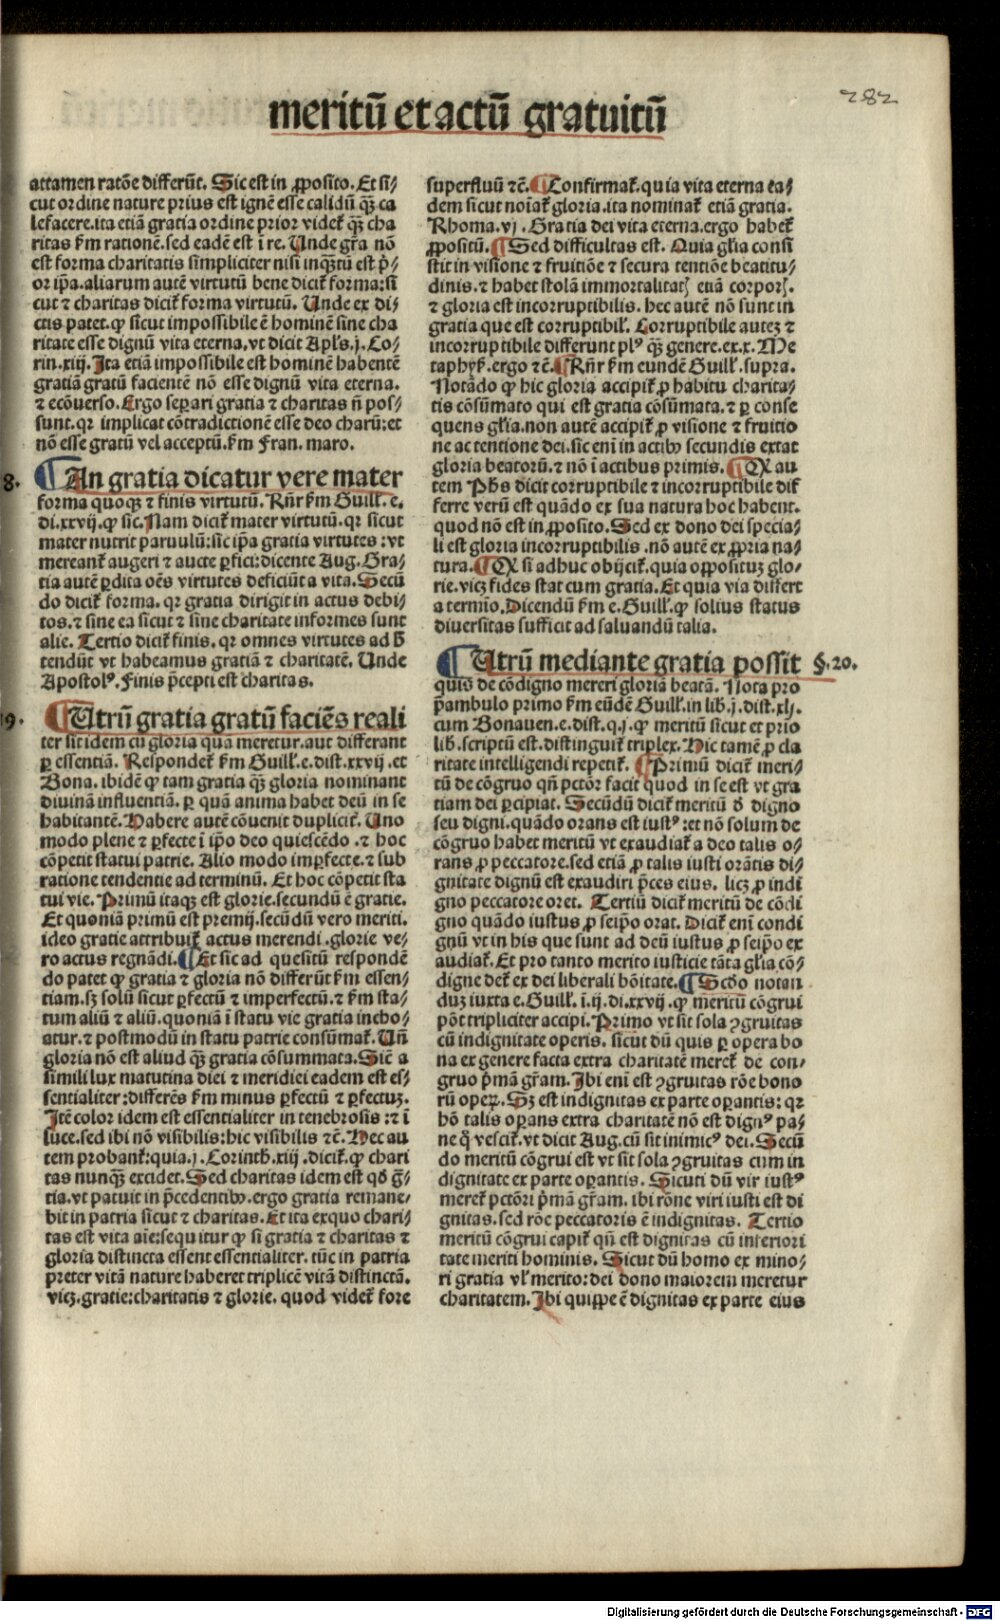 282
meritū et actū gratuitū
attamen ratōe differūt. Sic est in ꝓposito. Et si⸗
cut ordine nature prius est ignē esse calidū qꝫ̄ ca
lefacere. ita etiā gratia ordine prior videt᷑ qꝫ̄ cha
ritas ẜm rationē. sed eadē est ī re. Unde gr̄a nō
est forma charitatis simpliciter nisi inqꝫ̄tū est p̄⸗
or ip̄a. aliarum autē virtutū bene dicit᷑ forma: si
cut ⁊ charitas dicit᷑ forma virtutū. Unde ex di⸗
ctis patet. ꝙ sicut impossibile ē hominē sine cha
ritate esse dignū vita eterna. vt dicit Apl's. j. Co⸗
rin. xiij. Ita etiā impossibile est hominē habentē
gratiā gratū facientē nō esse dignū vita eterna.
⁊ ecōuerso. Ergo seꝑari gratia ⁊ charitas n̄ pos⸗
sunt. qꝛ implicat cōtradictionē esse deo charū: et
nō esse gratū vel acceptū. ẜm Fran. maro.
8. ¶ An gratia dicatur vere mater
forma quoqꝫ ⁊ finis virtutū. Rn̄r ẜm Guill'. e.
di. xxvij. ꝙ sic. Nam dicit᷑ mater virtutū. qꝛ sicut
mater nutrit paruulū: sic ip̄a gratia virtutes: vt
mereant᷑ augeri ⁊ aucte ꝑfici: dicente Aug. Gra⸗
tia autē ꝑdita oēs virtutes deficiūt a vita. Secū
do dicit᷑ forma. qꝛ gratia dirigit in actus debi⸗
tos. ⁊ sine ea sicut ⁊ sine charitate informes sunt
alie. Tertio dicit᷑ finis. qꝛ omnes virtutes ad h̄
tendūt vt habeamus gratiā ⁊ charitatē. Unde
Apostolꝰ. Finis p̄cepti est charitas.
19. ¶ Utrū gratia gratū faciēs reali
ter sit idem cū gloria quā meretur. aut differant
ꝑ essentiā. Respondet᷑ ẜm Guill'. e. dist. xxvij. et
Bona. ibidē ꝙ tam gratia qꝫ̄ gloria nominant
diuinā influentiā. ꝑ quā anima habet deū in se
habitantē. Habere autē cōuenit duplicit᷑. Uno
modo plene ⁊ ꝑfecte ī ip̄o deo quiescēdo. ⁊ hoc
cōpetit statui patrie. Alio modo imꝑfecte. ⁊ sub
ratione tendentie ad terminū. Et hoc cōpetit sta
tui vie. Primū itaqꝫ est glorie. secundū ē gratie.
Et quoniā primū est premij. secūdū vero meriti.
ideo gratie attribuit᷑ actus merendi. glorie ve⸗
ro actus regnādi. ¶ Et sic ad quesitū respondē
do patet ꝙ gratia ⁊ gloria nō differūt ẜm essen⸗
tiam. sꝫ solū sicut ꝑfectū ⁊ imperfectū. ⁊ ẜm sta⸗
tum aliū ⁊ aliū. quoniā ī statu vie gratia incho⸗
atur. ⁊ postmodū in statu patrie consūmat᷑. Un̄
gloria nō est aliud qꝫ̄ gratia cōsummata. Siē a
simili lux matutina diei ⁊ meridiei eadem est es⸗
sentialiter: differēs ẜm minus ꝑfectū ⁊ ꝑfectuꝫ.
Itē color idem est essentialiter in tenebrosis: ⁊ ī
luce. sed ibi nō visibilis: hic visibilis ⁊c̄. Hec au
tem probant᷑: quia. j. Corinth. xiij. dicit᷑. ꝙ chari
tas nunqꝫ̄ excidet. Sed charitas idem est qd̄ gr̄⸗
tia. vt patuit in p̄cedentibꝰ. ergo gratia remane⸗
bit in patria sicut ⁊ charitas. Et ita exquo chari⸗
tas est vita aīe: sequitur ꝙ si gratia ⁊ charitas ⁊
gloria distincta essent essentialiter. tūc in patria
preter vitā nature haberet triplicē vitā distinctā.
vicꝫ. gratie: charitatis ⁊ glorie. quod videt᷑ fore
superfluū ⁊c̄. ¶ Confirmat᷑. quia vita eterna ea⸗
dem sicut noīat᷑ gloria. ita nominat᷑ etiā gratia.
Rhoma. vj. Gratia dei vita eterna. ergo habet᷑
ꝓpositū. ¶ Sed difficultas est. Quia gl'ia consi
stit in visione ⁊ fruitiōe ⁊ secura tentiōe beatitu⸗
dinis. ⁊ habet stolā immortalitatꝭ etiā corporꝭ.
⁊ gloria est incorruptibilis. hec autē nō sunt in
gratia que est corruptibil'. Corruptibile auteꝫ ⁊
incorruptibile differunt plꝰ qꝫ̄ genere. ex. x. Me
taphy᷑. ergo ⁊c̄. ¶ Rn̄r ẜm eundē Guill'. supra.
Notādo ꝙ hic gloria accipit᷑ ꝓ habitu charita⸗
tis cōsūmato qui est gratia cōsūmata. ⁊ ꝑ conse
quens gl'ia. non autē accipit᷑ ꝓ visione ⁊ fruitio
ne ac tentione dei. sic enī in actibꝰ secundis extat
gloria beatorū. ⁊ nō ī actibus primis. ¶ Qꝛ au
tem Ph̄s dicit corruptibile ⁊ incorruptibile dif
ferre verū est quādo ex sua natura hoc habent.
quod nō est in ꝓposito. Sed ex dono dei specia⸗
li est gloria incorruptibilis. nō autē ex ꝓpria na⸗
tura. ¶ Qꝛ si adhuc obijcit᷑. quia oppositus glo⸗
rie. vicꝫ fides stat cum gratia. Et quia via differt
a termīo. Dicendū ẜm e. Guill'. ꝙ solius status
diuersitas sufficit ad saluandū talia.
¶ Utrū mediante gratia possit §. 20.
quis de cōdigno mereri gloriā beatā. Nota pro
p̄ambulo primo ẜm eūdē Guill'. in lib. j. dist. xlj.
cum Bonauen. e. dist. q. j. ꝙ meritū sicut et prio
lib. scriptū est. distinguit᷑ triplex. Hic tamē ꝓ cla
ritate intelligendi repetit᷑. ¶ Primū dicit᷑ meri⸗
tū de cōgruo qn̄ pctōr facit quod in se est vt gra
tiam dei ꝑcipiat. Secūdū dicit᷑ meritū d̄ digno
seu digni. quādo orans est iustꝰ: et nō solum de
cōgruo habet meritū vt exaudiat᷑ a deo talis o⸗
rans ꝓ peccatore. sed etiā ꝓ talis iusti orātis di⸗
gnitate dignū est exaudiri p̄ces eius. licꝫ ꝓ indi
gno peccatore oret. Tertiū dicit᷑ meritū de cōdi
gno quādo iustus ꝓ seip̄o orat. Dicit᷑ enī condi
gnū vt in his que sunt ad deū iustus ꝓ seip̄o ex
audiat᷑. Et pro tanto merito iusticie tāta gl'ia cō⸗
digne det᷑ ex dei liberali bōitate. ¶ Scd̄o notan
duꝫ iuxta e. Guill'. ī. ij. di. xxvij. ꝙ meritū cōgrui
pōt tripliciter accipi. Primo vt sit sola ꝯgruitas
cū indignitate operis. sicut dū quis ꝑ opera bo
na ex genere facta extra charitatē meret᷑ de con⸗
gruo p̄mā gr̄am. Ibi enī est ꝯgruitas rōe bono
rū operꝝ. Sꝫ est indignitas ex parte oꝑantis: qꝛ
hō talis oꝑans extra charitatē nō est dignꝰ pa⸗
ne q̄ vescit᷑. vt dicit Aug. cū sit inimicꝰ dei. Secū
do meritū cōgrui est vt sit sola ꝯgruitas cum in
dignitate ex parte oꝑantis. Sicuti dū vir iustꝰ
meret᷑ pctōri p̄mā gr̄am. ibi rōne viri iusti est di
gnitas. sed rōe peccatoris ē indignitas. Tertio
meritū cōgrui capit᷑ qn̄ est dignitas cū inferiori
tate meriti hominis. Sicut dū homo ex mino⸗
ri gratia vl' merito: dei dono maiorem meretur
charitatem. Ibi quippe ē dignitas ex parte eius
Digitalisierung gefördert durch die Deutsche Forschungsgemeinschaft - DFG